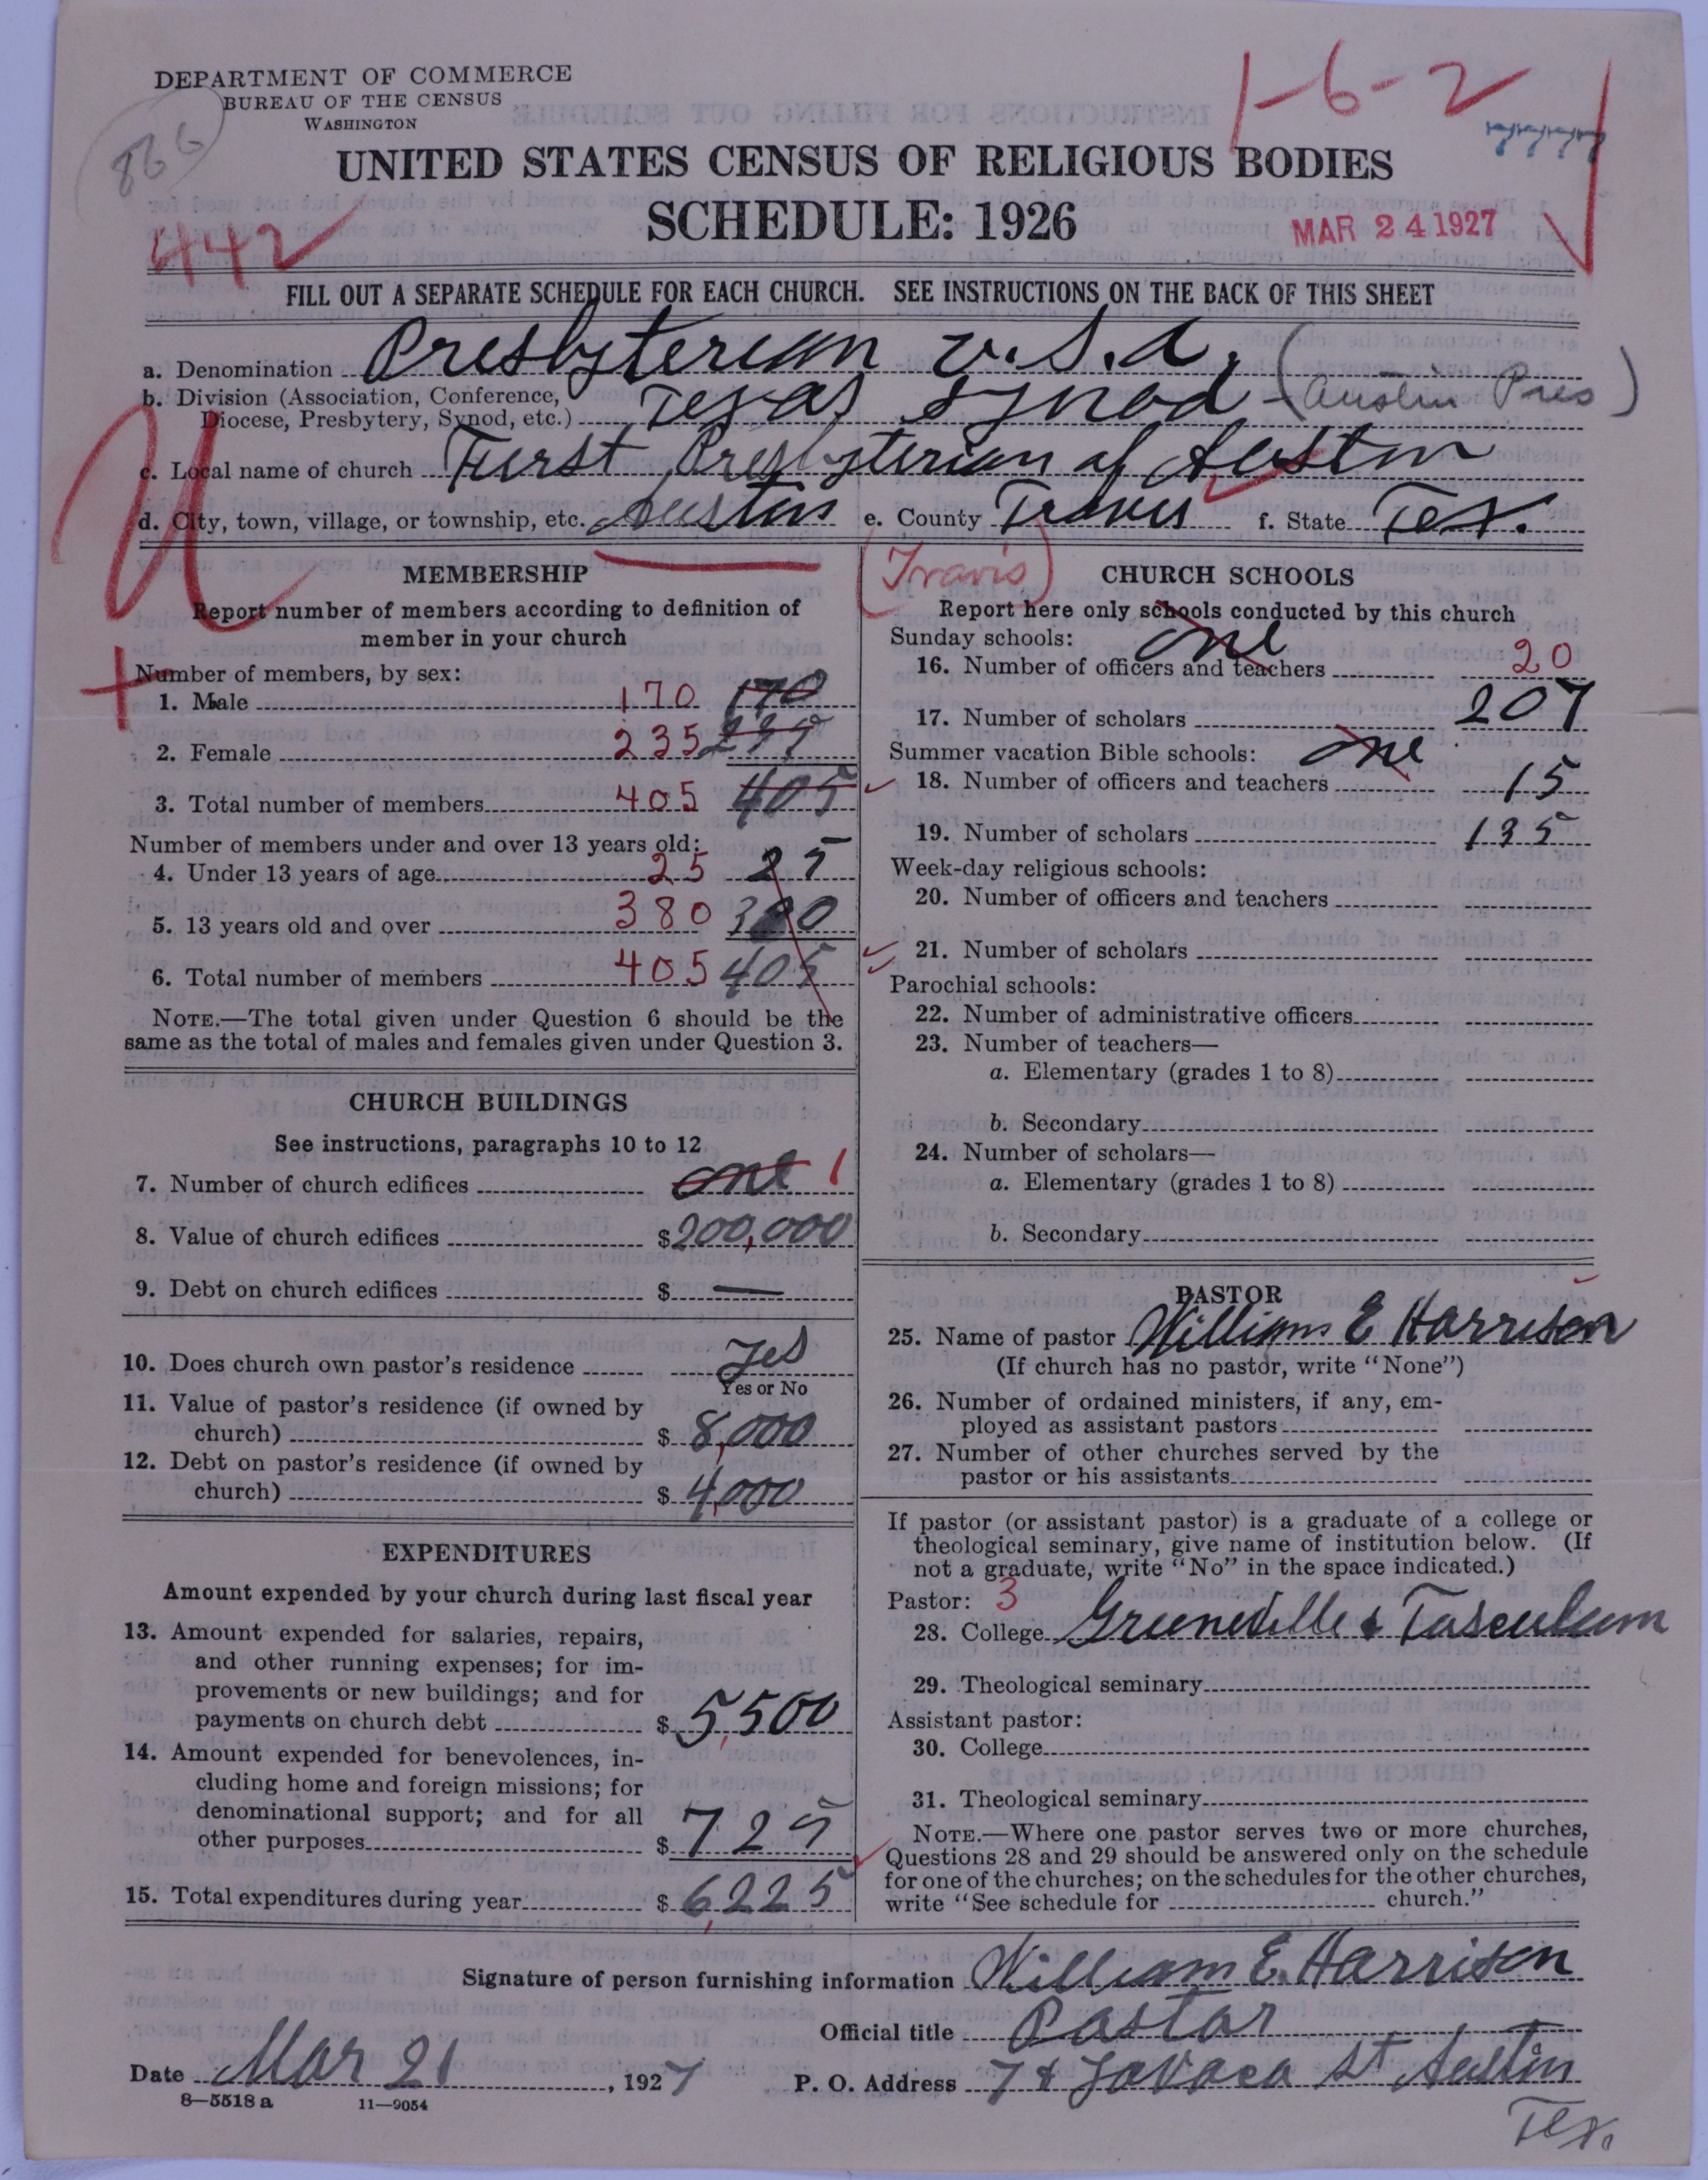 DEPARTMENT OF COMMERCE
BUREAU OF THE CENSUS
WASHINGTON
866
1-6-2
UNITED STATES CENSUS OF RELIGIOUS BODIES
SCHEDULE: 1926
442
MAR 24 1927
FILL OUT A SEPARATE SCHEDULE FOR EACH CHURCH. SEE INSTRUCTIONS ON THE BACK OF THIS SHEET
a. Denomination Presbyterian U.S.A.
b. Division (Association, Conference,
Diocese, Presbytery, Synod, etc.) Texas Synod (Austin Pres)
c. Local name of church First Presbyterian of Austin
d. City, town, village, or township, etc. Austin e. County Travis f. State Tex.
U
(Travis)
MEMBERSHIP
Report number of members according to definition of
member in your church
Number of members, by sex:
1. Male 170 170
2. Female 235
3. Total number of members 405 405
Number of members under and over 13 years old:
4. Under 13 years of age 25 25
5. 13 years old and over 380 380
6. Total number of members 405 405
NOTE.—The total given under Question 6 should be the
same as the total of males and females given under Question 3.
CHURCH BUILDINGS
See instructions, paragraphs 10 to 12
7. Number of church edifices one 1
8. Value of church edifices $200,000
9. Debt on church edifices $ —
10. Does church own pastor's residence Yes
Yes or No
11. Value of pastor's residence (if owned by
church) $ 8,000
12. Debt on pastor's residence (if owned by
church) $ 4,000
EXPENDITURES
Amount expended by your church during last fiscal year
13. Amount expended for salaries, repairs,
and other running expenses; for im-
provements or new buildings; and for
payments on church debt $ 5,500
14. Amount expended for benevolences, in-
cluding home and foreign missions; for
denominational support; and for all
other purposes $ 725
15. Total expenditures during year $ 6,225
CHURCH SCHOOLS
Report here only schools conducted by this church
Sunday schools: one
16. Number of officers and teachers 20
17. Number of scholars 207
Summer vacation Bible schools: one
18. Number of officers and teachers 15
19. Number of scholars 135
Week-day religious schools:
20. Number of officers and teachers
21. Number of scholars
Parochial schools:
22. Number of administrative officers
23. Number of teachers—
a. Elementary (grades 1 to 8)
b. Secondary
24. Number of scholars—
a. Elementary (grades 1 to 8)
b. Secondary
PASTOR
25. Name of pastor William E Harrison
(If church has no pastor, write "None")
26. Number of ordained ministers, if any, em-
ployed as assistant pastors
27. Number of other churches served by the
pastor or his assistants
If pastor (or assistant pastor) is a graduate of a college or
theological seminary, give name of institution below. (If
not a graduate, write "No" in the space indicated.)
Pastor: 3
28. College Greeneville & Tusculum
29. Theological seminary
Assistant pastor:
30. College
31. Theological seminary
NOTE.—Where one pastor serves two or more churches,
Questions 28 and 29 should be answered only on the schedule
for one of the churches; on the schedules for the other churches,
write "See schedule for church."
Signature of person furnishing information William E. Harrison
Official title Pastor
Date Mar 21, 1927 P. O. Address 7 & Lavaca St Austin
Tex.
8—5518 a 11—9054